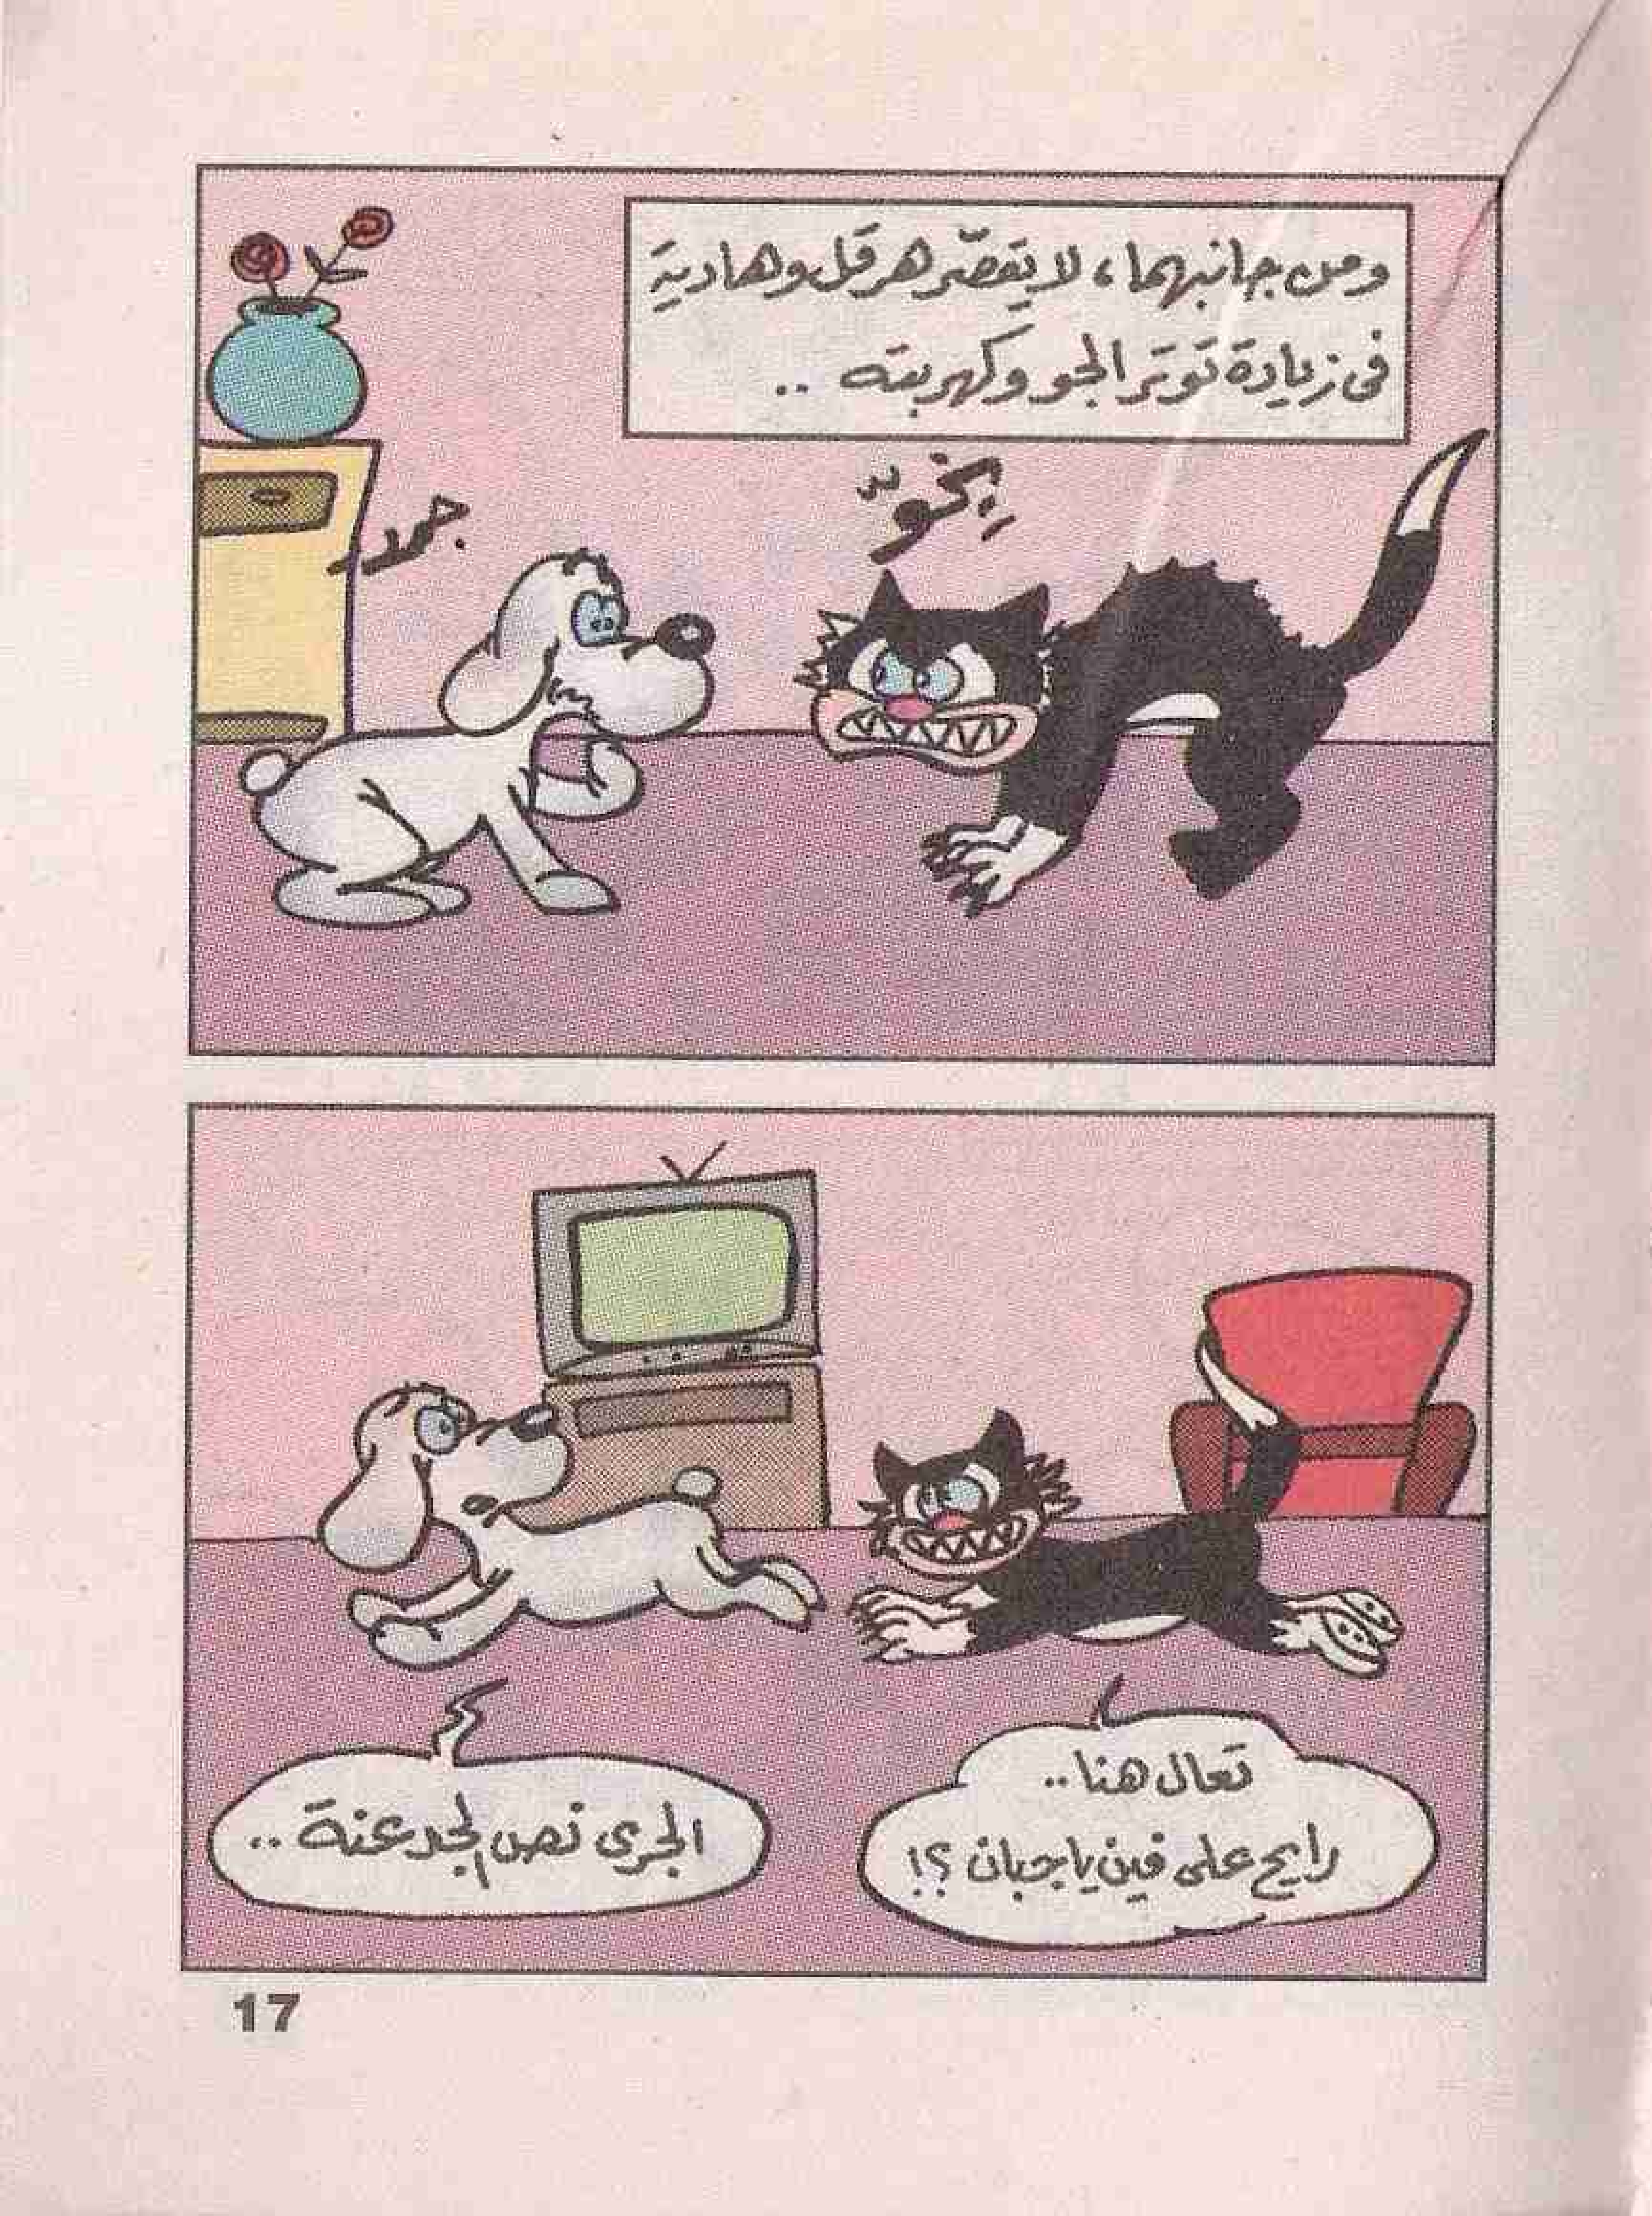 ومن جانبهما، لا يقصّر هرقل وهادية
فى زيادة توتر الجو وكهربته ..
تعال هنا ..
رايح على فين يا جبان ؟!
الجرى نص الجدعنة ..
17